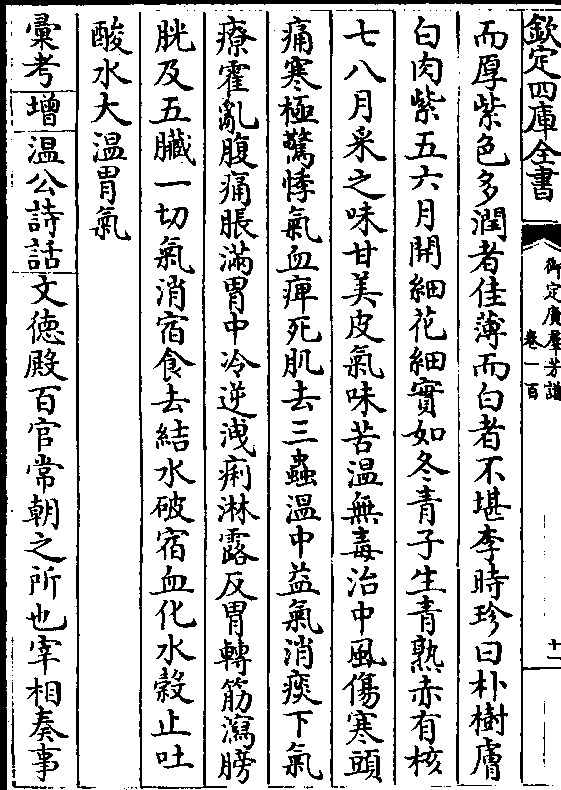 欽定四庫全書
御定廣羣芳譜
卷一百
十一
而厚紫色多潤者佳薄而白者不堪李時珍曰朴樹膚
白肉紫五六月開細花細實如冬青子生青熟赤有核
七八月采之味甘美皮氣味苦温無毒治中風傷寒頭
痛寒極驚悸氣血痺死肌去三蟲温中益氣消痰下氣
療霍亂腹痛脹滿胃中冷逆洩痢淋露反胃轉筋瀉膀
胱及五臟一切氣消宿食去結水破宿血化水穀止吐
酸水大温胃氣
彚考增温公詩話文徳殿百官常朝之所也宰相奏事